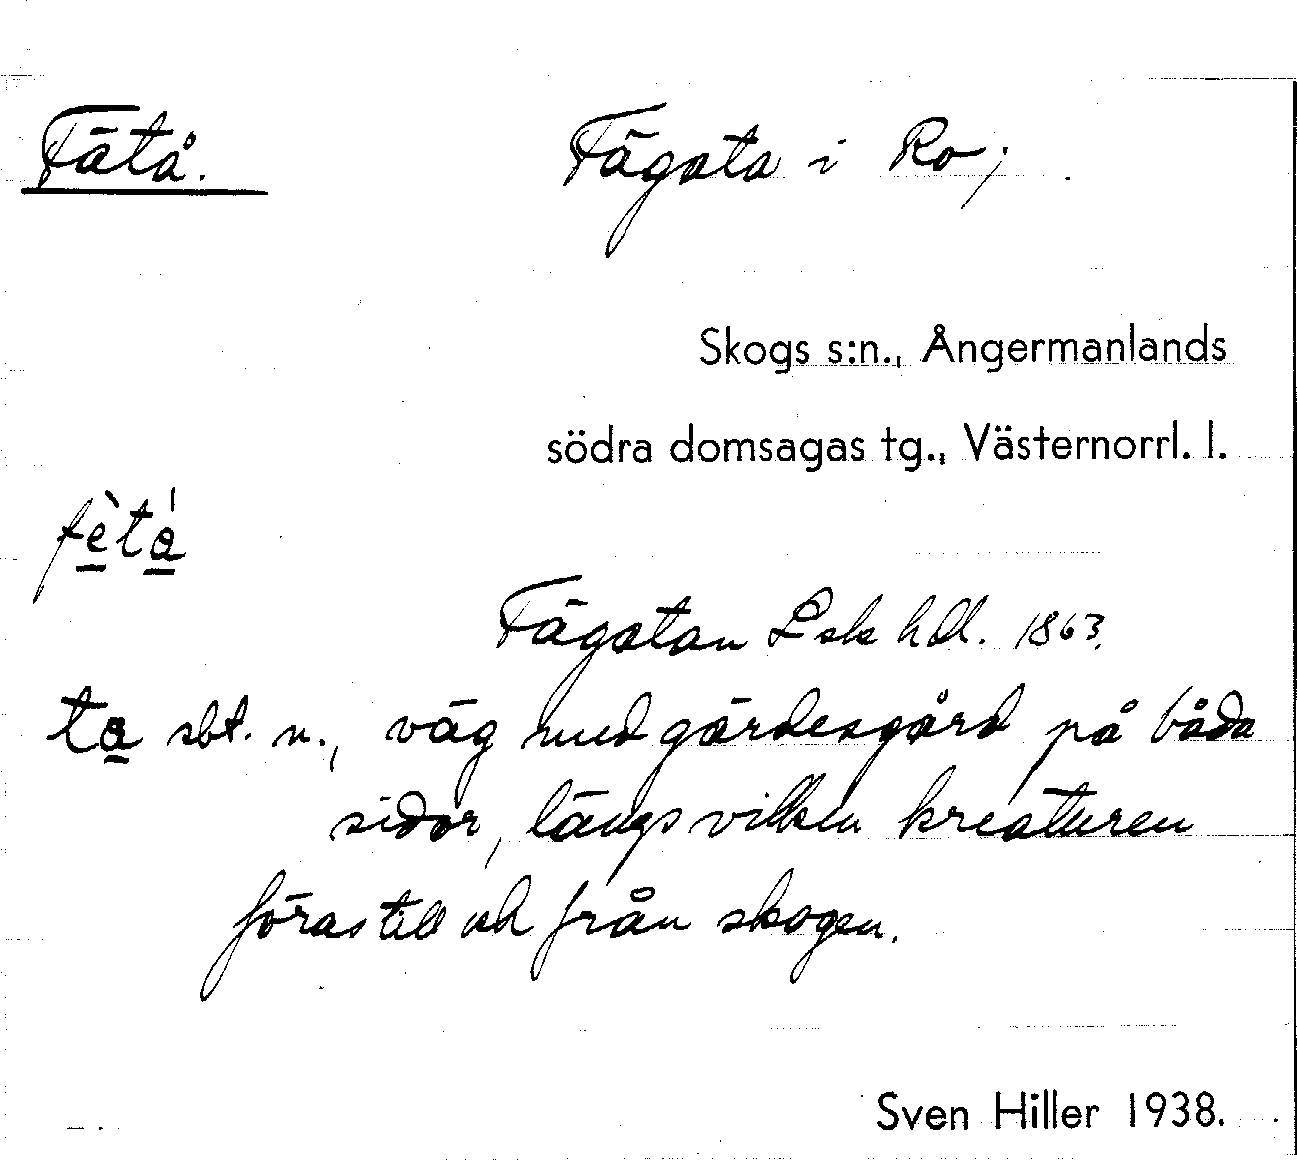 Fätå.
Fägata i Ro;
Skogs s:n., Ångermanlands
södra domsagas tg., Västernorrl. l.
fètá
Fägatan Lsk hdl. 1863.
ta sbt. n., väg med gärdesgård på båda
sidor, längs vilken kreaturen
föras till och från skogen.
Sven Hiller 1938.